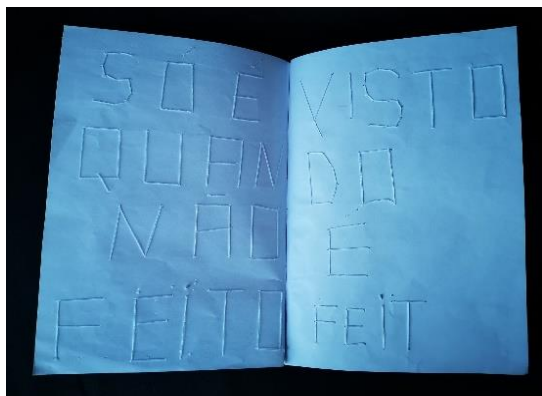 SÓ É VISTO
QUANDO
NÃO É
FEITO FEIT